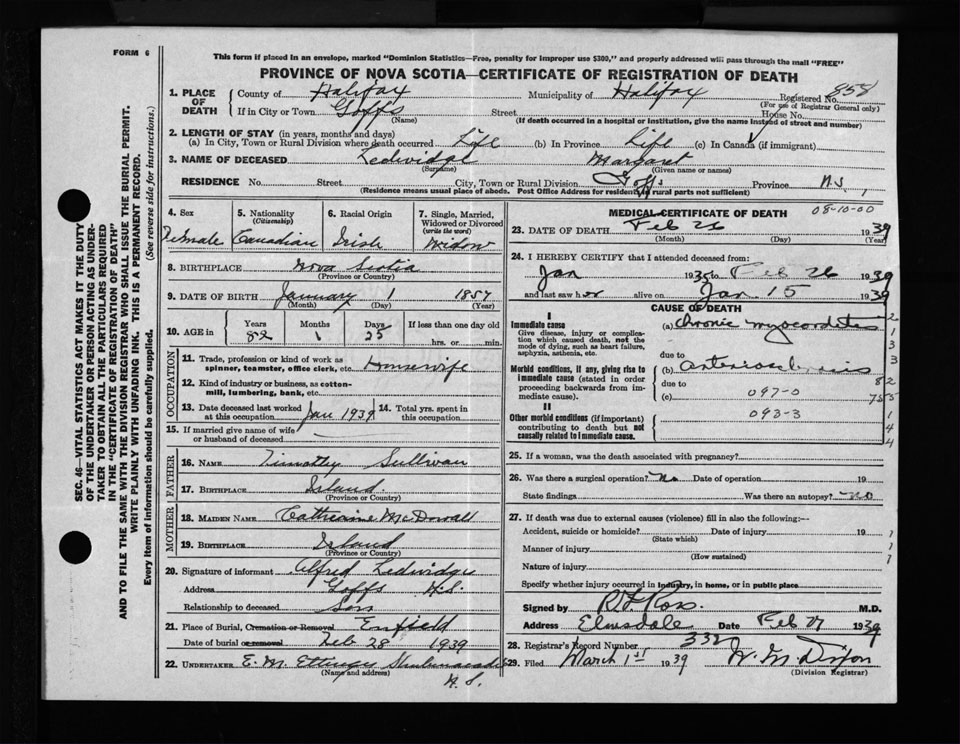 FORM 6
This form if placed in an envelope, marked "Dominion Statistics—Free, penalty for improper use $300," and properly addressed will pass through the mail "FREE"
PROVINCE OF NOVA SCOTIA—CERTIFICATE OF REGISTRATION OF DEATH
SEC. 46—VITAL STATISTICS ACT MAKES IT THE DUTY
OF THE UNDERTAKER OR PERSON ACTING AS UNDER-
TAKER TO OBTAIN ALL THE PARTICULARS REQUIRED
IN THE "CERTIFICATE OF REGISTRATION OF DEATH"
AND TO FILE THE SAME WITH THE DIVISION REGISTRAR WHO SHALL ISSUE THE BURIAL PERMIT.
WRITE PLAINLY WITH UNFADING INK. THIS IS A PERMANENT RECORD.
Every item of information should be carefully supplied. (See reverse side for instructions.)
1. PLACE OF DEATH
County of Halifax Municipality of Halifax Registered No. 858
(For use of Registrar General only)
If in City or Town Goffs Street House No.
(Name) (If death occurred in a hospital or institution, give the name instead of street and number)
2. LENGTH OF STAY (in years, months and days)
(a) In City, Town or Rural Division where death occurred Life (b) In Province Life (c) In Canada (if immigrant)
3. NAME OF DECEASED Ledwidge Margaret
(Surname) (Given name or names)
RESIDENCE No. Street City, Town or Rural Division Goffs Province N.S.
(Residence means usual place of abode. Post Office Address for residents in rural parts not sufficient)
4. Sex
Female
5. Nationality
(Citizenship)
Canadian
6. Racial Origin
Irish
7. Single, Married,
Widowed or Divorced
(write the word)
Widow
8. BIRTHPLACE Nova Scotia
(Province or Country)
9. DATE OF BIRTH January 1 1857
(Month) (Day) (Year)
10. AGE in
Years Months Days If less than one day old
82 1 25 hrs. or min.
OCCUPATION
11. Trade, profession or kind of work as
spinner, teamster, office clerk, etc. Housewife
12. Kind of industry or business, as cotton-
mill, lumbering, bank, etc.
13. Date deceased last worked
at this occupation Jan 1939
14. Total yrs. spent in
this occupation
15. If married give name of wife
or husband of deceased
FATHER
16. NAME Timothy Sullivan
17. BIRTHPLACE Ireland
(Province or Country)
MOTHER
18. MAIDEN NAME Catherine McDowall
19. BIRTHPLACE Ireland
(Province or Country)
20. Signature of informant Alfred Ledwidge
Address Goffs N.S.
Relationship to deceased Son
21. Place of Burial, Cremation or Removal Enfield
Date of burial or removal Feb 28 1939
22. UNDERTAKER E. M. Ettinger Shubenacadie
(Name and address) N.S.
MEDICAL CERTIFICATE OF DEATH
08-10-00
23. DATE OF DEATH Feb 26 1939
(Month) (Day) (Year)
24. I HEREBY CERTIFY that I attended deceased from:
Jan 1935 to Feb 26 1939
and last saw her alive on Jan. 15 1939
CAUSE OF DEATH
I
Immediate cause
Give disease, injury or complica-
tion which caused death, not the
mode of dying, such as heart failure,
asphyxia, asthenia, etc.
(a) Chronic myocarditis
due to
Morbid conditions, if any, giving rise to
immediate cause (stated in order
proceeding backwards from im-
mediate cause).
(b) arteriosclerosis
due to
(c) 097-0
II
Other morbid conditions (if important)
contributing to death but not
causally related to immediate cause.
093-3
25. If a woman, was the death associated with pregnancy?
26. Was there a surgical operation? No Date of operation 19
State findings Was there an autopsy? no
27. If death was due to external causes (violence) fill in also the following:—
Accident, suicide or homicide? Date of injury 19
(State which)
Manner of injury
(How sustained)
Nature of injury
Specify whether injury occurred in industry, in home, or in public place
Signed by R L Ross. M.D.
Address Elmsdale Date Feb 27 1939
28. Registrar's Record Number 332
29. Filed March 1st 1939 W. M Dixon
(Division Registrar)